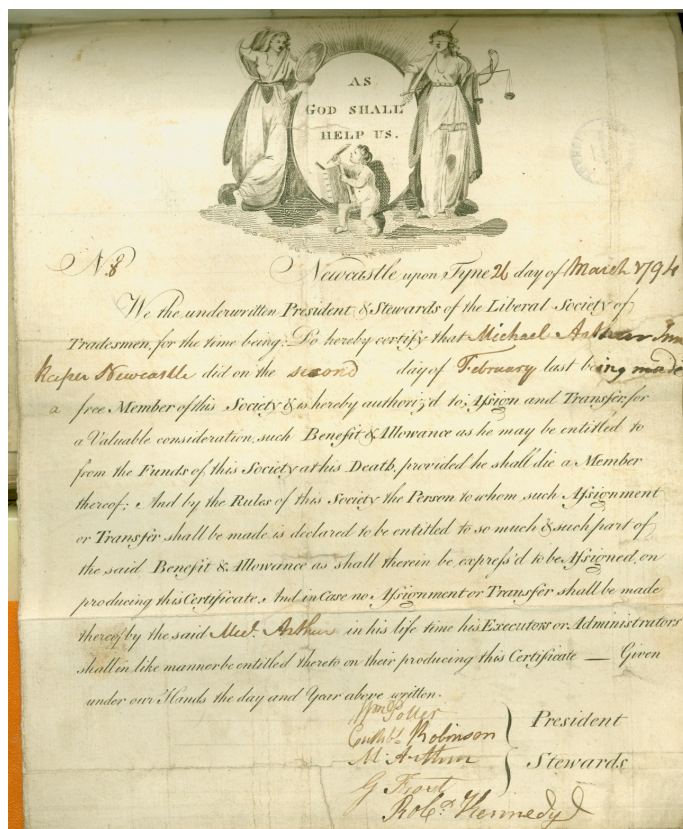 AS
GOD SHALL
HELP US.
No. 8 Newcastle upon Tyne 26 day of March 1794
We the underwritten President & Stewards of the Liberal Society of
Tradesmen, for the time being: Do hereby certify that Michael Arthur Inn
keeper Newcastle did on the second day of February last being made
a free Member of this Society & is hereby authoriz'd to Assign and Transfer for
a Valuable consideration, such Benefit & Allowance as he may be entitled to
from the Funds of this Society at his Death, provided he shall die a Member
thereof; And by the Rules of this Society the Person to whom such Assignment
or Transfer shall be made is declared to be entitled to so much & such part of
the said Benefit & Allowance as shall therein be express'd to be Assigned, on
producing this Certificate. And in Case no Assignment or Transfer shall be made
thereof by the said Micl. Arthur in his life time his Executors or Administrators
shall in like manner be entitled thereto on their producing this Certificate — Given
under our Hands the day and Year above written.
Wm Potter
Cuthbt. Robinson President
M. Arthur Stewards
G Ford
Robt. Kennedy